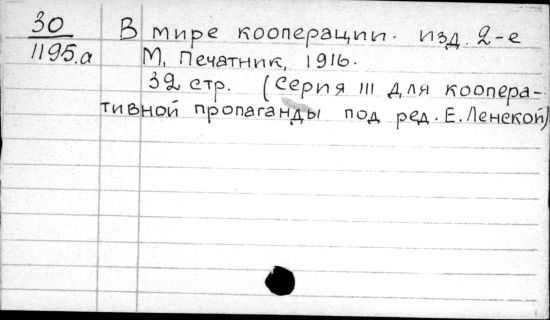 30 В мире кооперации. изд. 2-е
1195.а М, Печатник, 1916.
32 стр. (Серия III для коопера-
тивной пропаганды под ред. Е. Ленской)